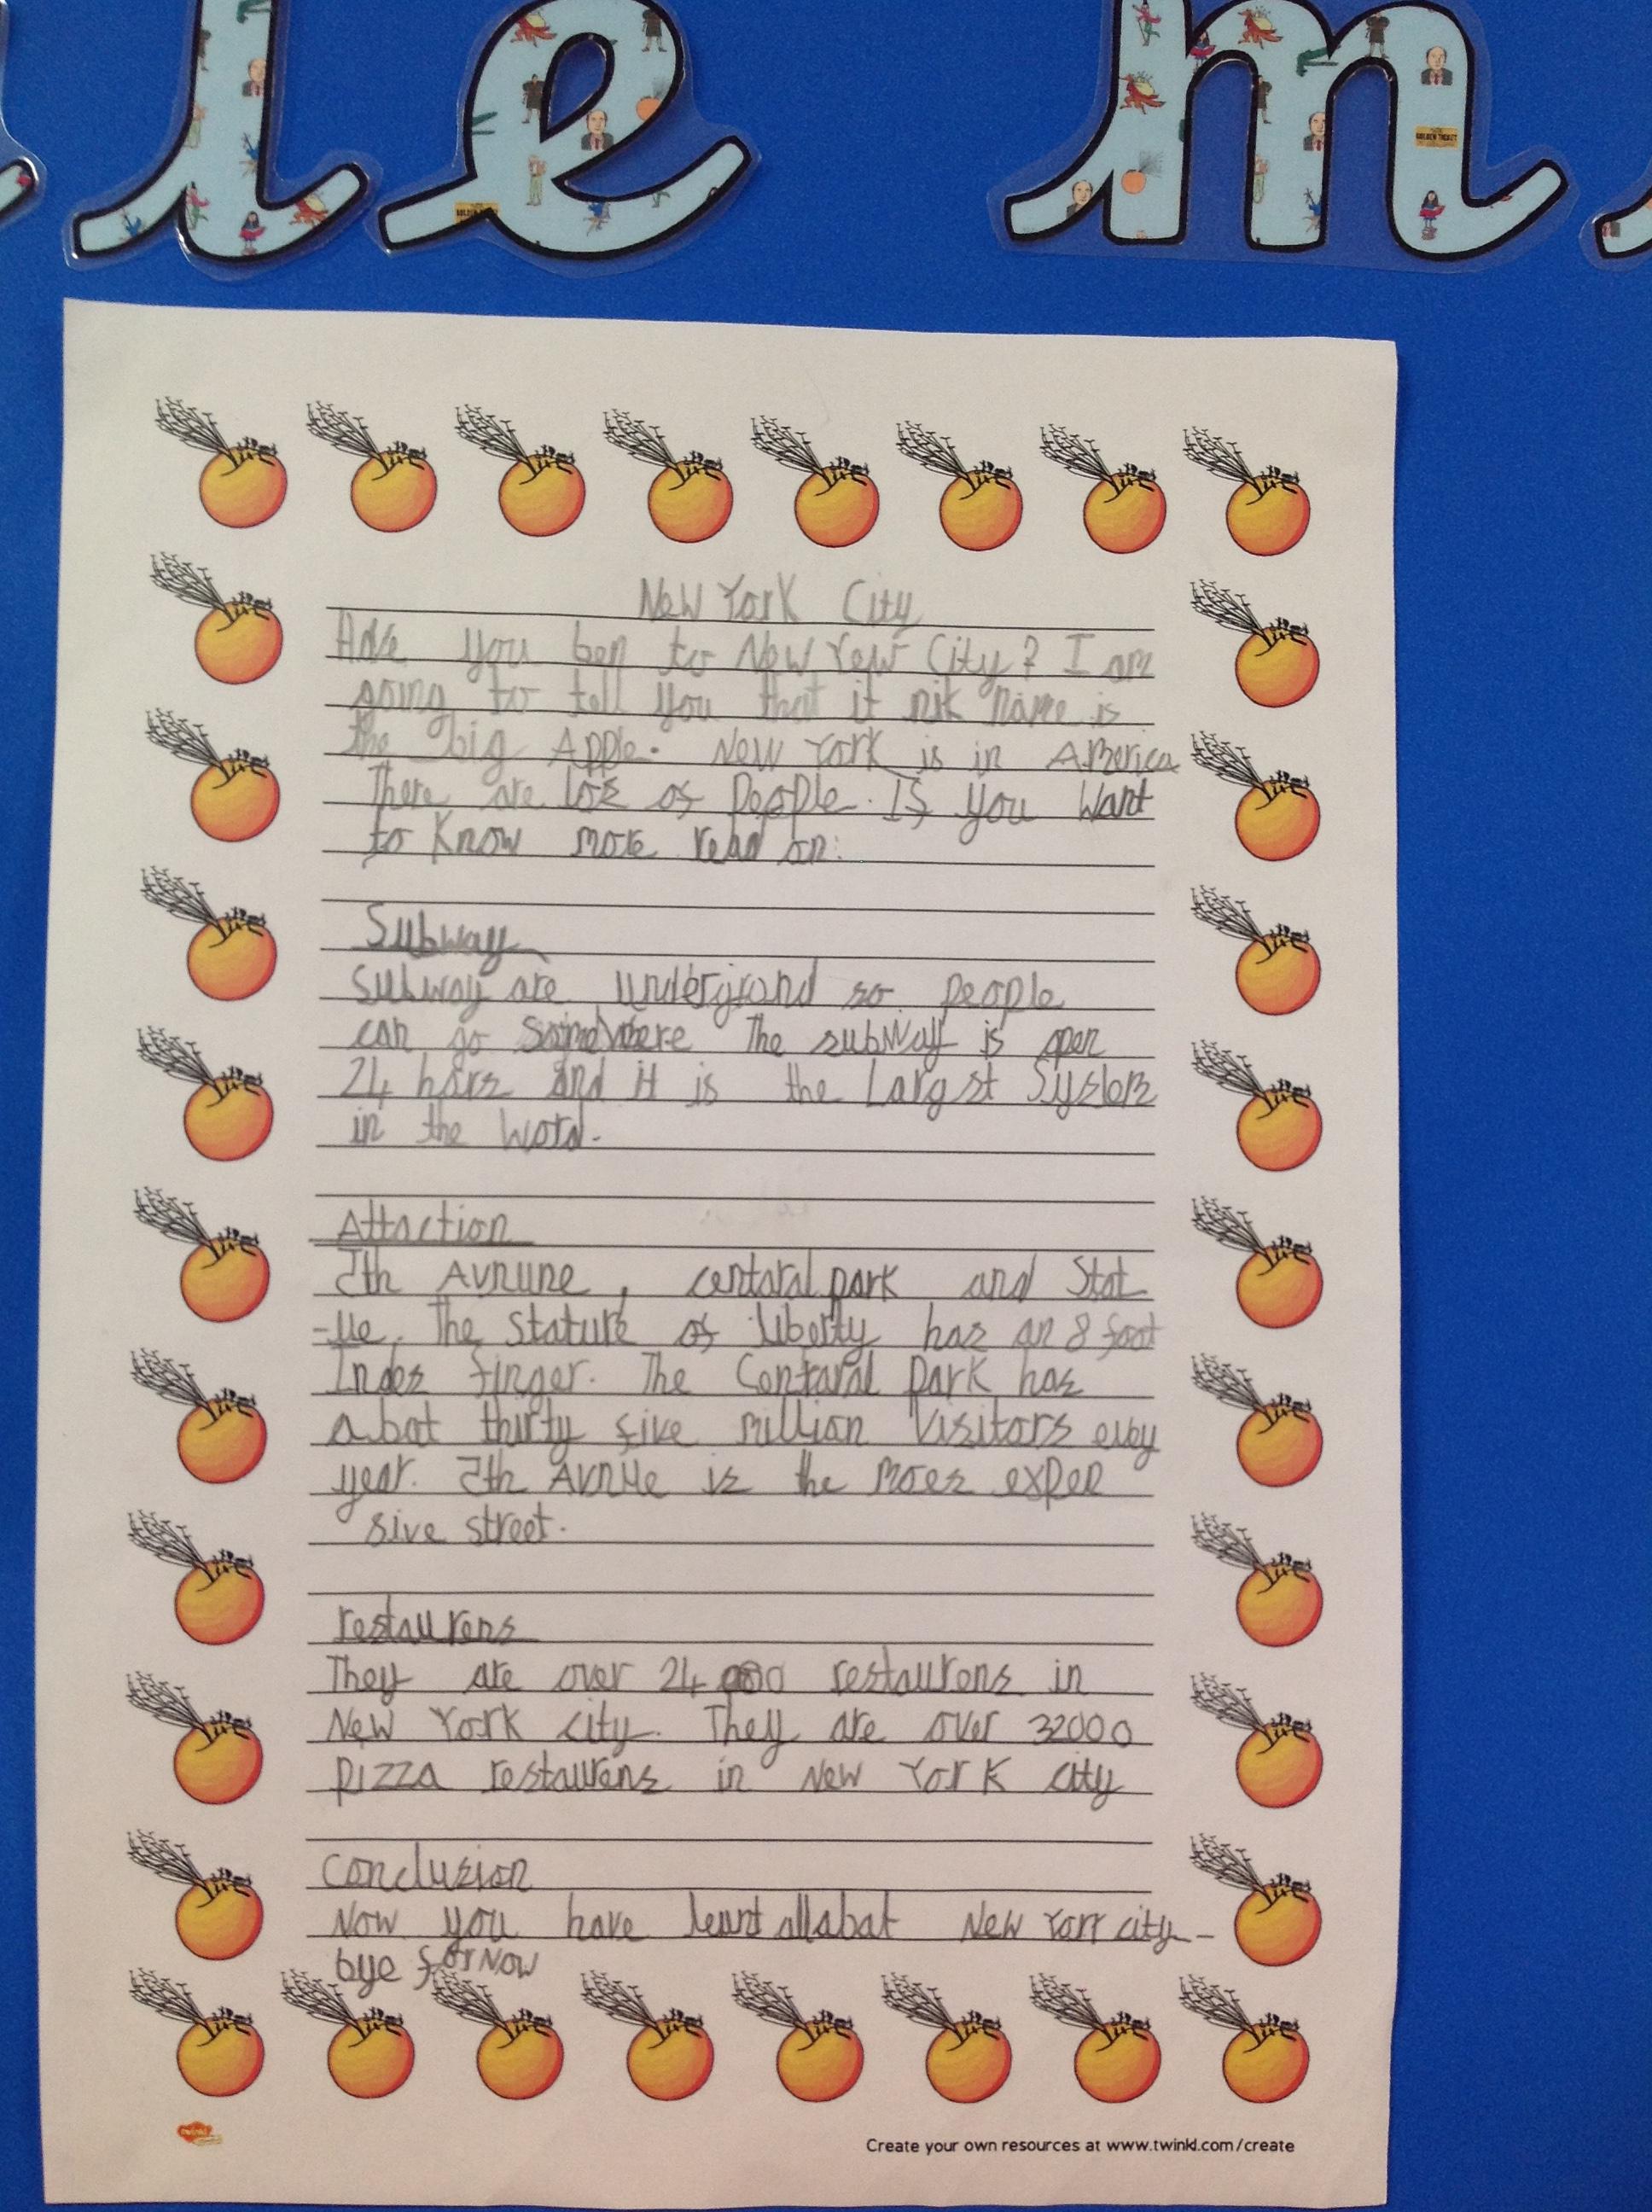 l e m
New York City
Have you ben to New Yew City? I am
going to tell you that it nik name is
the big Apple. New York is in America
There are los of People. If you want
to know more read on.
Subway
Subway are undergrand so people
can go somewhere The subway is open
24 hars and it is the Largst System
in the word.
Attaction
5th Avnune, centaral park and Stat
-ue. The stature of liberty has an 8 foot
Index finger. The Centaral park has
abot thirty five million visitors evey
year. 5th Avnue is the moes expen
sive street.
restaurens
They are over 24 000 restaurens in
New York city. They are over 32000
pizza restaurens in New York city
Conclusion
Now you have leant all abat New York city.
bye for Now
twinkl
Create your own resources at www.twinkl.com/create